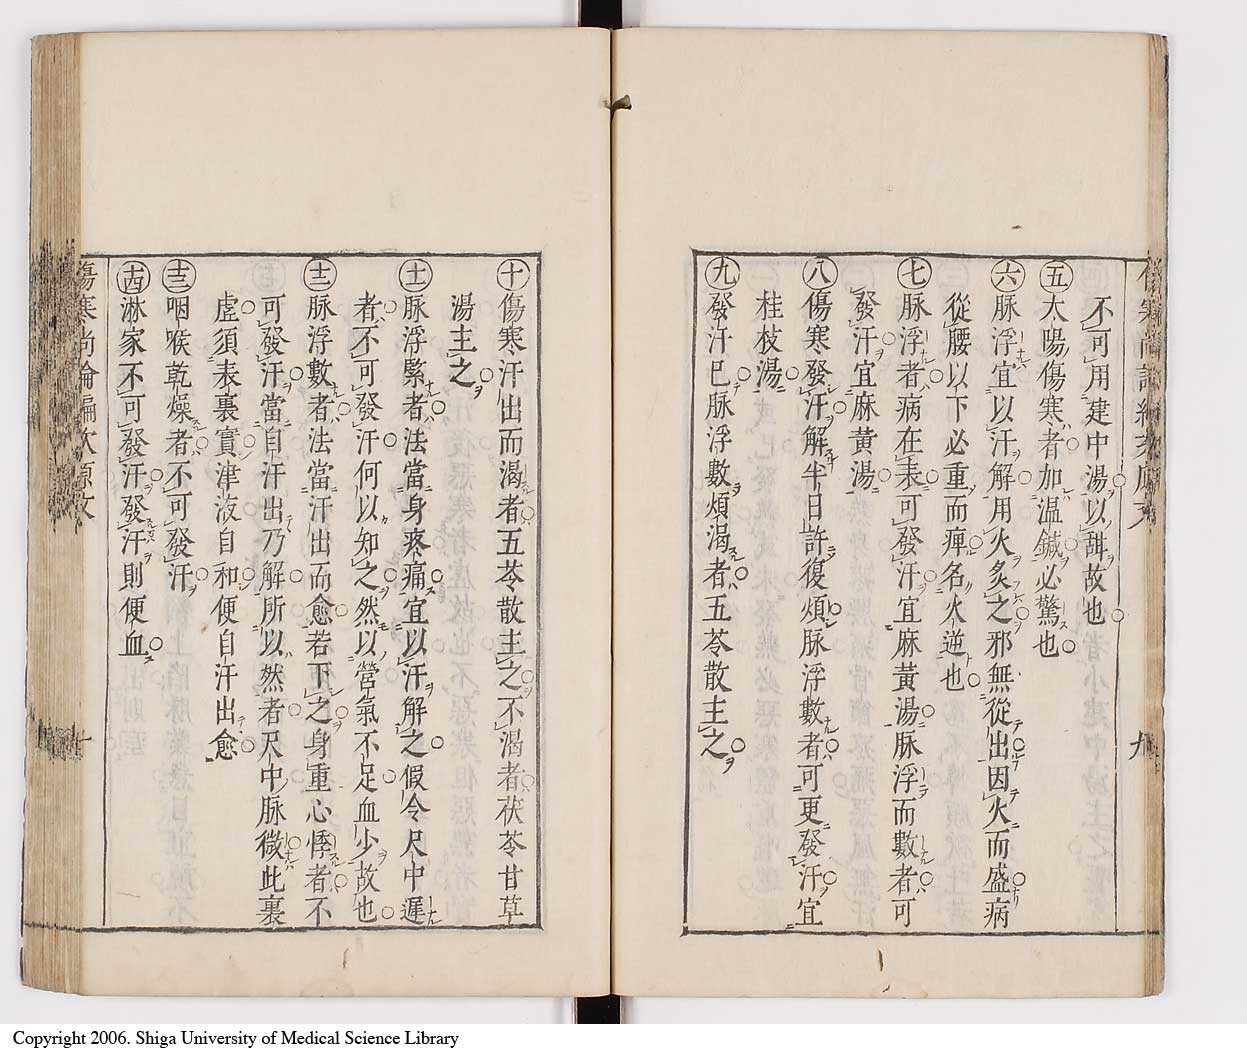 不可用建中湯以甜故也
五太陽傷寒者加温鍼必驚也
六脉浮宜以汗解用火灸之邪無從出因火而盛病
從腰以下必重而痺名火逆也
七脉浮者病在表可發汗宜麻黃湯脉浮而數者可
發汗宜麻黃湯
八傷寒發汗解半日許復煩脉浮數者可更發汗宜
桂枝湯
九發汗已脉浮數煩渴者五苓散主之
十傷寒汗出而渴者五苓散主之不渴者茯苓甘草
湯主之
十一脉浮緊者法當身疼痛宜以汗解之假令尺中遲
者不可發汗何以知之然以營氣不足血少故也
十二脉浮數者法當汗出而愈若下之身重心悸者不
可發汗當自汗出乃解所以然者尺中脉微此裏
虛須表裏實津液自和便自汗出愈
十三咽喉乾燥者不可發汗
十四淋家不可發汗發汗則便血
Copyright 2006. Shiga University of Medical Science Library